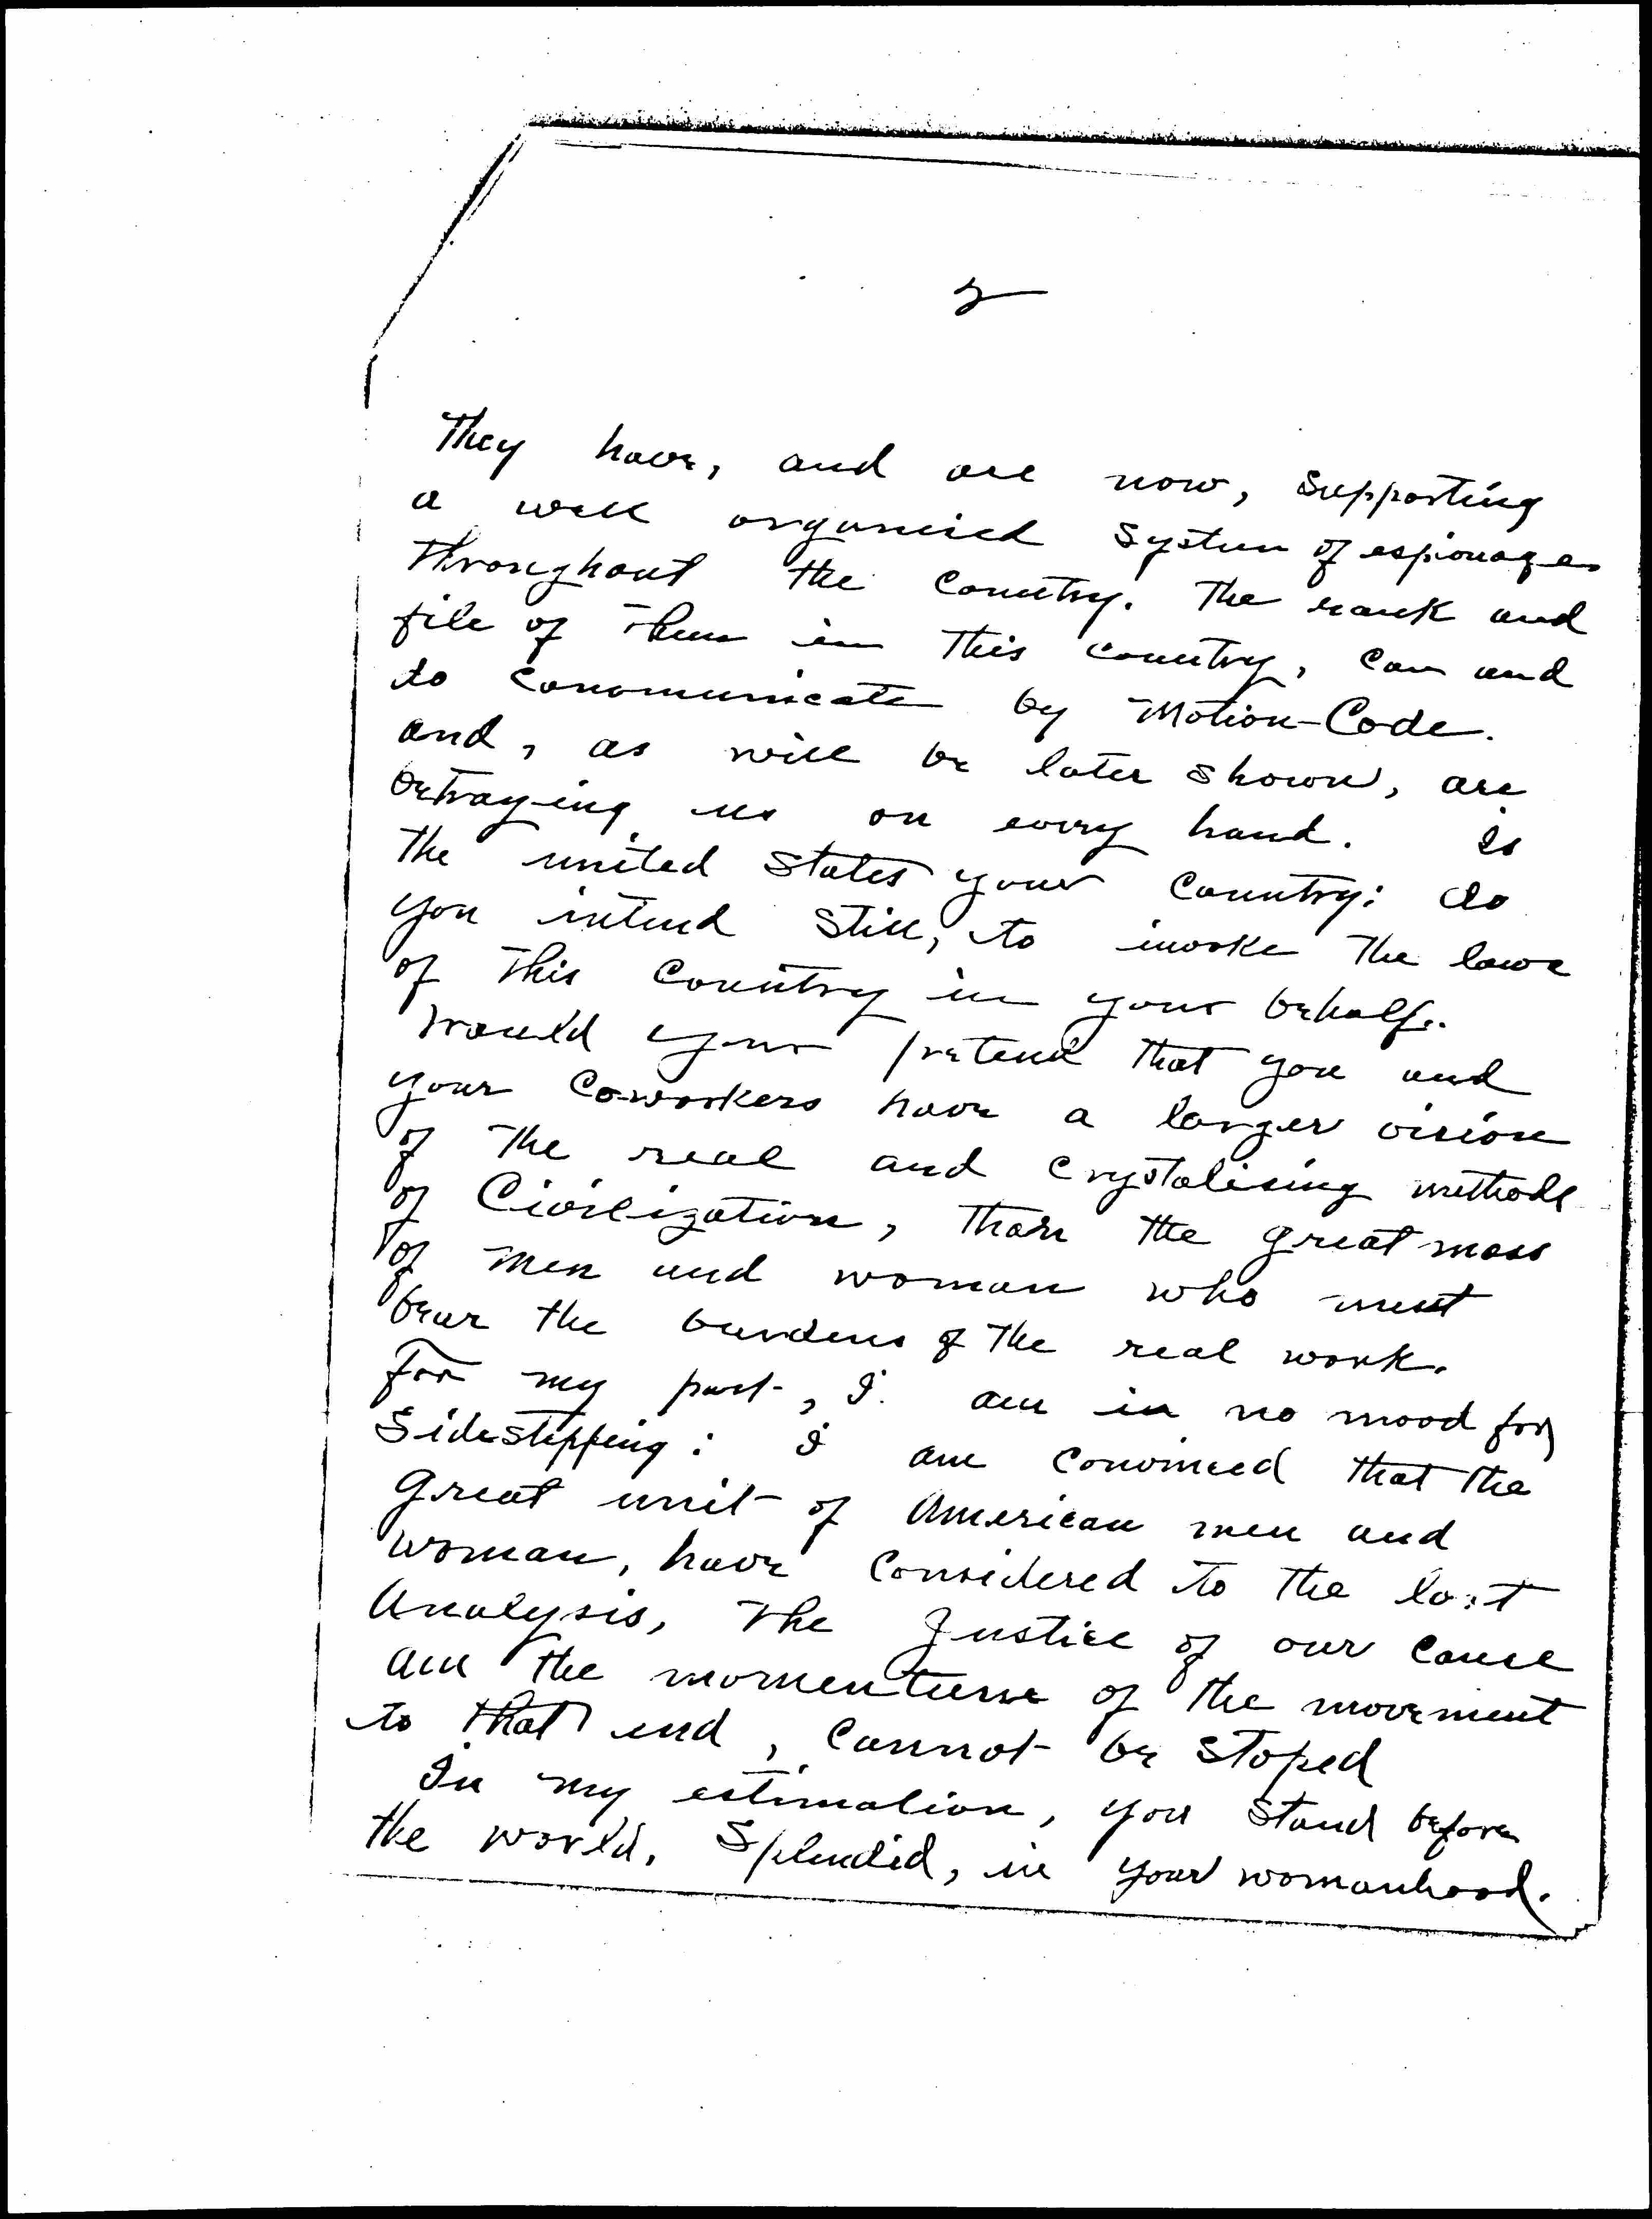 2
They have, and are now, supporting
a well organised System of espionage
throughout the Country. The rank and
file of them in this country, can and
do communicate by Motion-Code.
and, as will be later shown, are
betraying us on every hand. Is
the united States your Country: do
you intend still, to invoke the laws
of this Country in your behalf.
Would you pretend that you and
your Coworkers have a larger vision
of the real and Crystalising methods
of Civilization, than the great mass
of men and woman who must
bear the burdens of the real work.
For my part, I am in no mood for
Sidestepping: I am Convinced that the
great unit of American men and
woman, have Considered to the last
Analysis, the Justice of our Cause
and the momentum of the movement
to that end, Cannot be Stoped
In my estimation, you Stand before
the world, Splendid, in your womanhood.